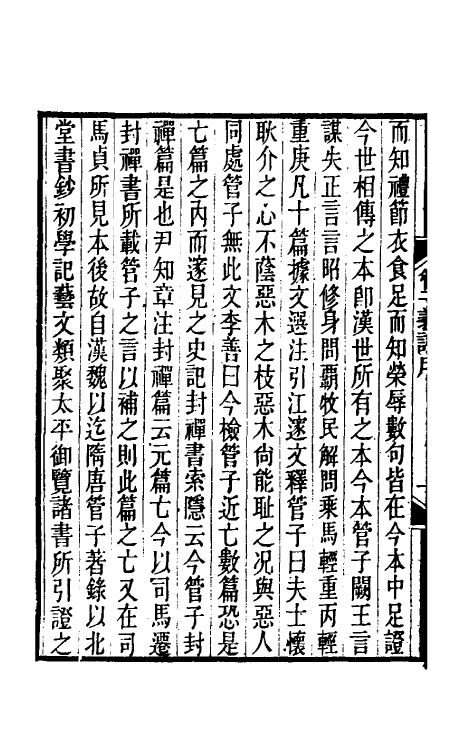 而知禮節衣食足而知榮辱數句皆在今本中足證
今世相傳之本卽漢世所有之本今本管子闕王言
謀失正言言昭修身問霸牧民解問乘馬輕重丙輕
重庚凡十篇據文選注引江邃文釋管子曰夫士懷
耿介之心不蔭惡木之枝惡木尚能耻之况與惡人
同處管子無此文李善曰今檢管子近亡數篇恐是
七篇之內而邃見之史記封禪書索隱云今管子封
禪篇是也尹知章注封禪篇云元篇七今以司馬遷
封禪書所載管子之言以補之則此篇之亡又在司
馬貞所見本後故自漢魏以迄隋唐管子著錄以北
堂書鈔初學記藝文類聚太平御覽諸書所引證之